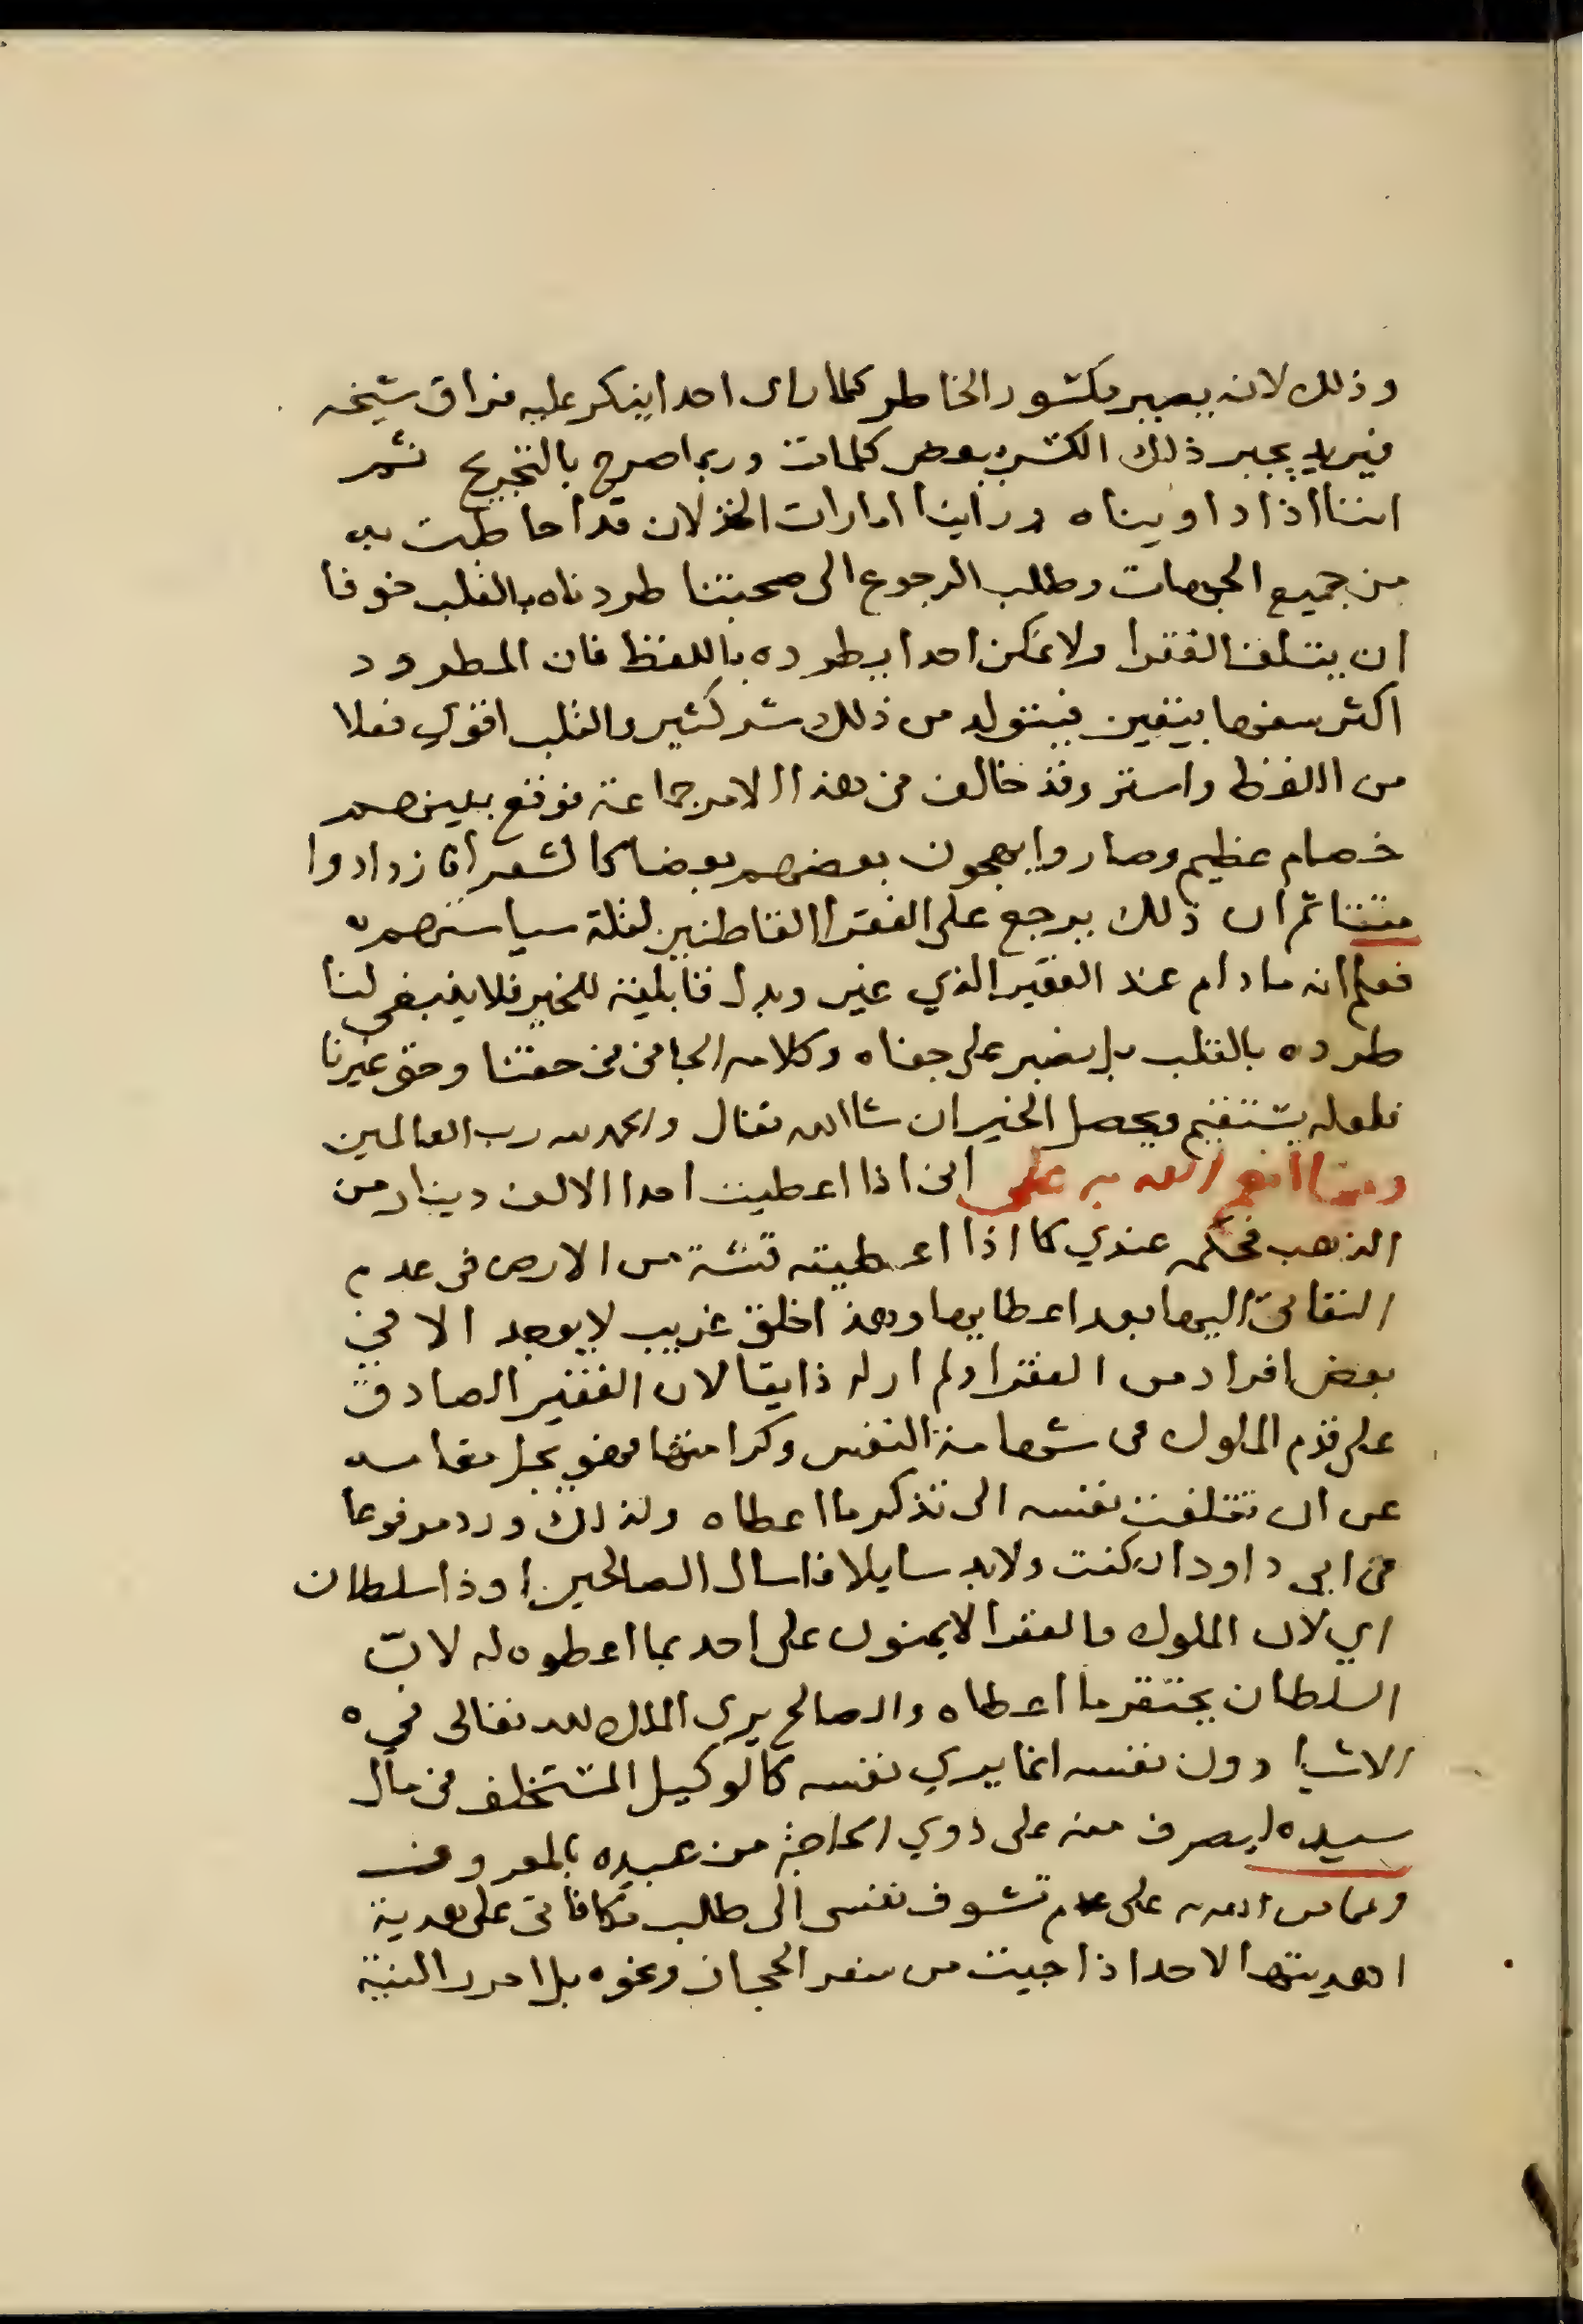 وذلك لانه يصير مكشور الخاطر كلما راى احدا ينكر عليه فراق شيخه
فيريد يجبر ذلك الكسر ببعض كلمات وربما صرح بالتجريح ثم
اننا اذا داويناه وراينا امارات الخذلان قد احاطت به
من جميع الجهات وطلب الرجوع الى صحبتنا طردناه بالقلب خوفا
ان يتلف الفقرا ولا نمكن احدا يطرده باللفظ فان المطرود
اكثر سفها بيقين فيتولد من ذلك شر كثير والقلب اقوى فعلا
من اللفظ واستر وقد خالف في هذا الامر جماعة فوقع بينهم
خصام عظيم وصاروا يهجون بعضهم بعضا كالشعرا فازدادوا
مقتا ثم ان ذلك يرجع على الفقرا القاطنين لقلة سياستهم
فعلم انه مادام عند الفقير الذي غير وبدل قابلية للخير فلا ينبغى لنا
طرده بالقلب بل نصبر على جفاه وكلامه الجافى فى حقنا وحق غيرنا
فلعله يستقيم ويحصل الخير ان شا الله تعالى والحمد لله رب العالمين
ومما انعم الله به على انى اذا اعطيت احدا الالف دينار من
الذهب فحكمه عندي كما اذا اعطيته قشة من الارض فى عدم
التفاتى اليها بعد اعطايها وهذا خلق غريب لا يوجد الا فى
بعض افراد من الفقرا ولم ار له ذايقا لان الفقير الصادق
على قدم الملوك فى شهامة النفس وكرامتها فهو يجل مقامه
عن ان تتلفت نفسه الى تذكر ما اعطاه ولذلك ورد مرفوعا
فى ابى داود ان كنت ولابد سايلا فاسال الصالحين او ذا سلطان
اي لان الملوك والفقرا لا يمنون على احد بما اعطوه له لان
السلطان يحتقر ما اعطاه والصالح يرى الملك لله تعالى في
الاشيا دون نفسه انما يري نفسه كالوكيل المستخلف فى مال
سيده ليصرف منه على ذوي الحاجة من عبيده بالمعروف
ومما من الله به على عدم تشوف نفسى الى طلب مكافاتى على هدية
اهديتها لاحد اذا جيت من سفر الحجاز ونحوه بل احرر النية